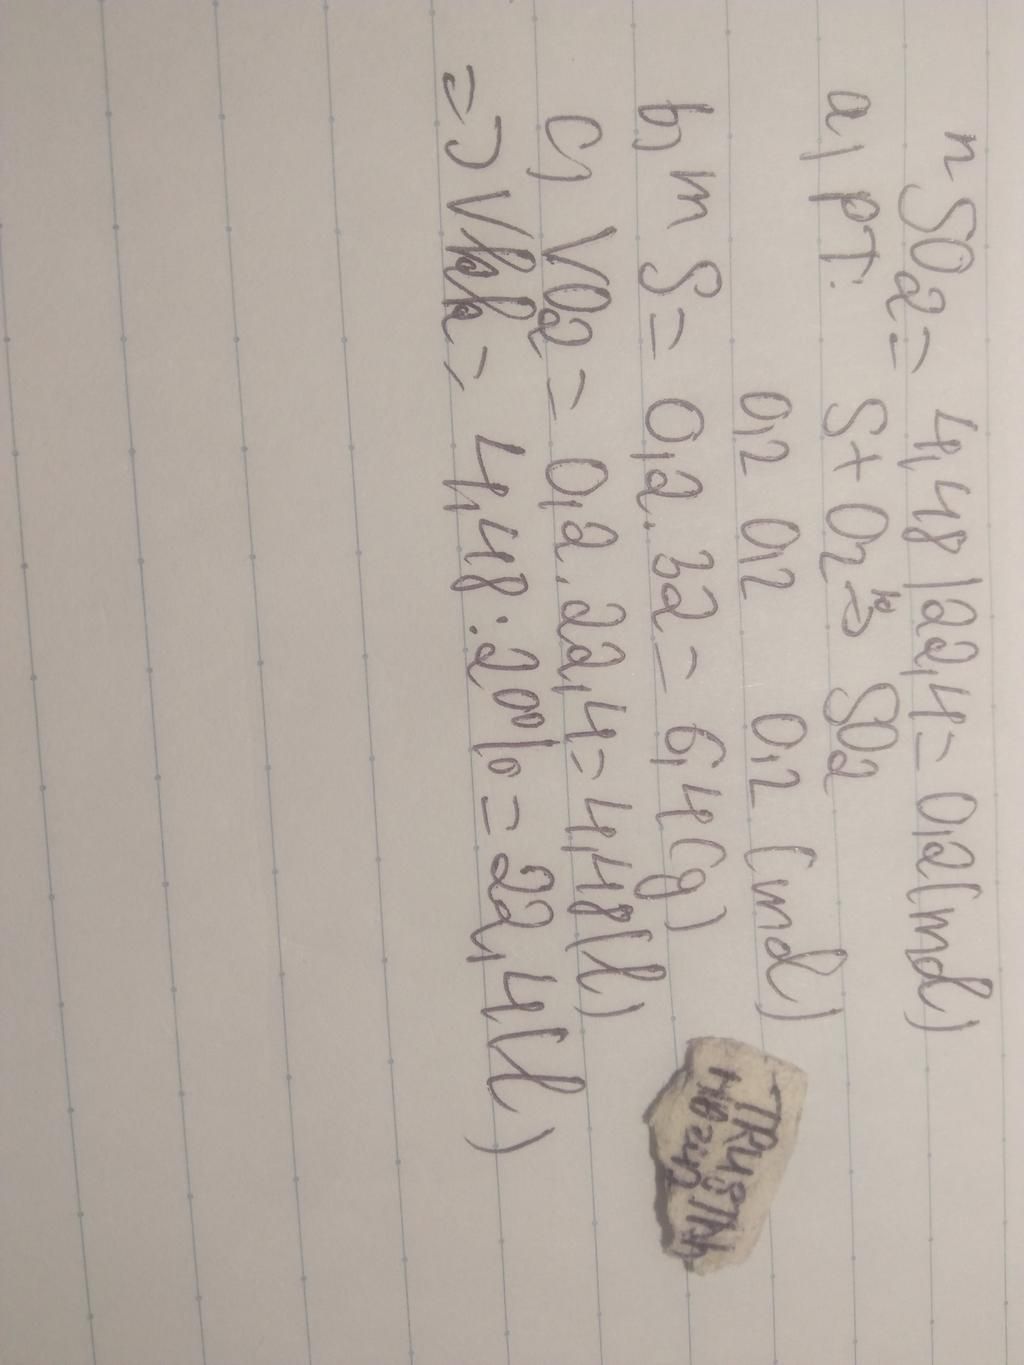 nSO2 = 4,48/22,4 = 0,2(mol)
a, PT: S + O2 to→ SO2
0,2 0,2 0,2 (mol)
b, mS = 0,2.32 = 6,4(g)
c, VO2 = 0,2.22,4 = 4,48(l)
=> Vkk = 4,48:20% = 22,4(l)